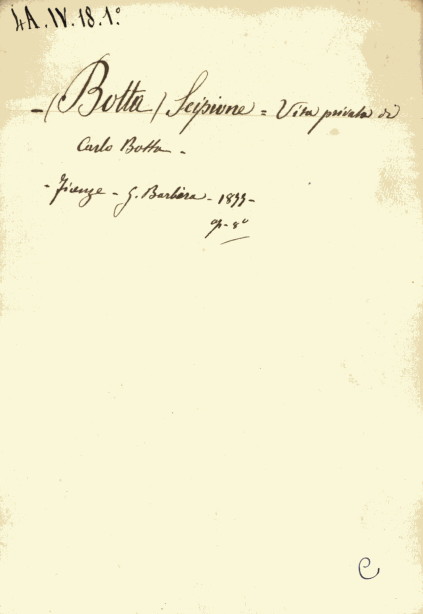 4A.IV.18.1°
- (Botta) Scipione = Vita privata di
Carlo Botta -
- Firenze - G. Barbèra - 1877 -
op - 8°
C